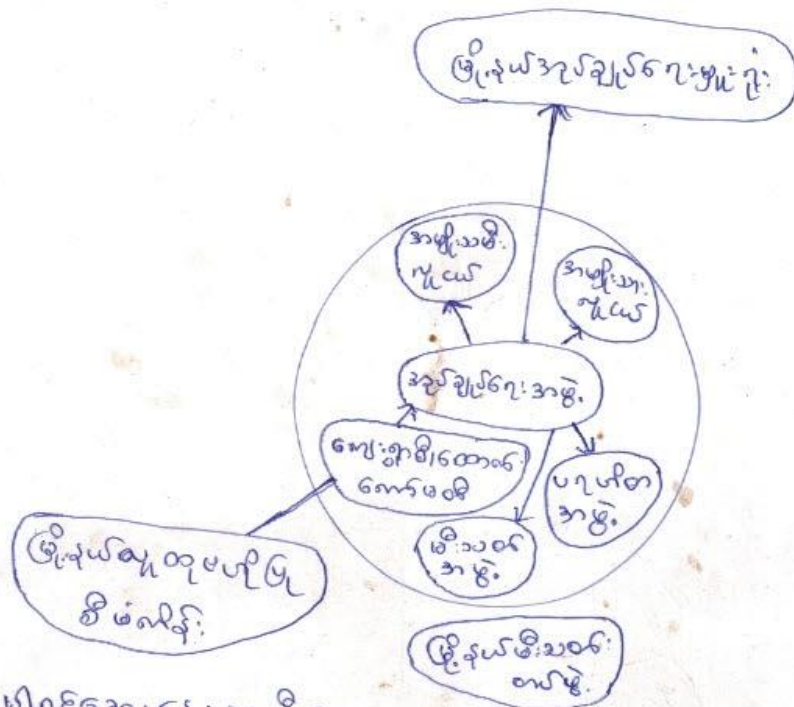 မြို့နယ်အုပ်ချုပ်ရေးမှူးရုံး
အမျိုးသမီး
လူငယ်
အမျိုးသား
လူငယ်
အုပ်ချုပ်ရေးအဖွဲ့
ကျေးရွာစီးထောက်
ကော်မတီ
ပရဟိတ
အဖွဲ့
မီးသတ်
အဖွဲ့
မြို့နယ်လူထုဗဟိုပြု
စီမံကိန်း
မြို့နယ်မီးသတ်
တပ်ဖွဲ့